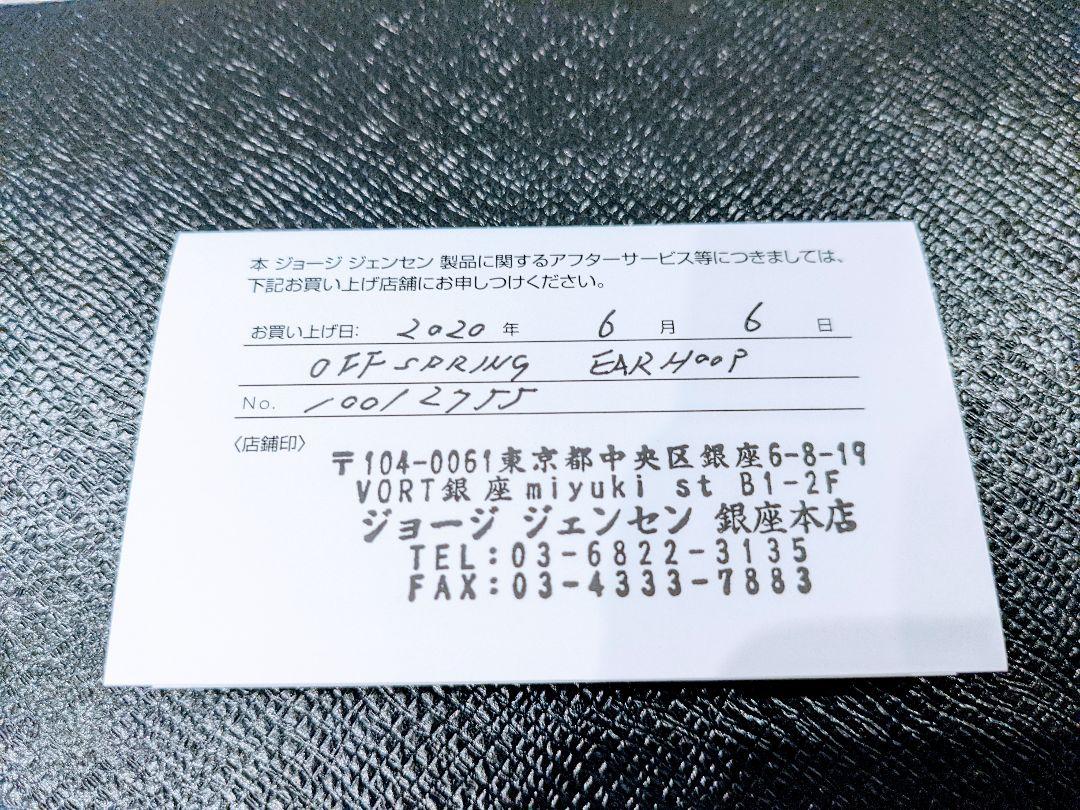 本 ジョージ ジェンセン 製品に関するアフターサービス等につきましては、
下記お買い上げ店舗にお申しつけください。
お買い上げ日: 2020 年 6 月 6 日
OFFSPRING EARHOOP
No. 10012755
〈店舗印〉
〒104-0061東京都中央区銀座6-8-19
VORT銀座miyuki st B1-2F
ジョージ ジェンセン 銀座本店
TEL:03-6822-3135
FAX:03-4333-7883